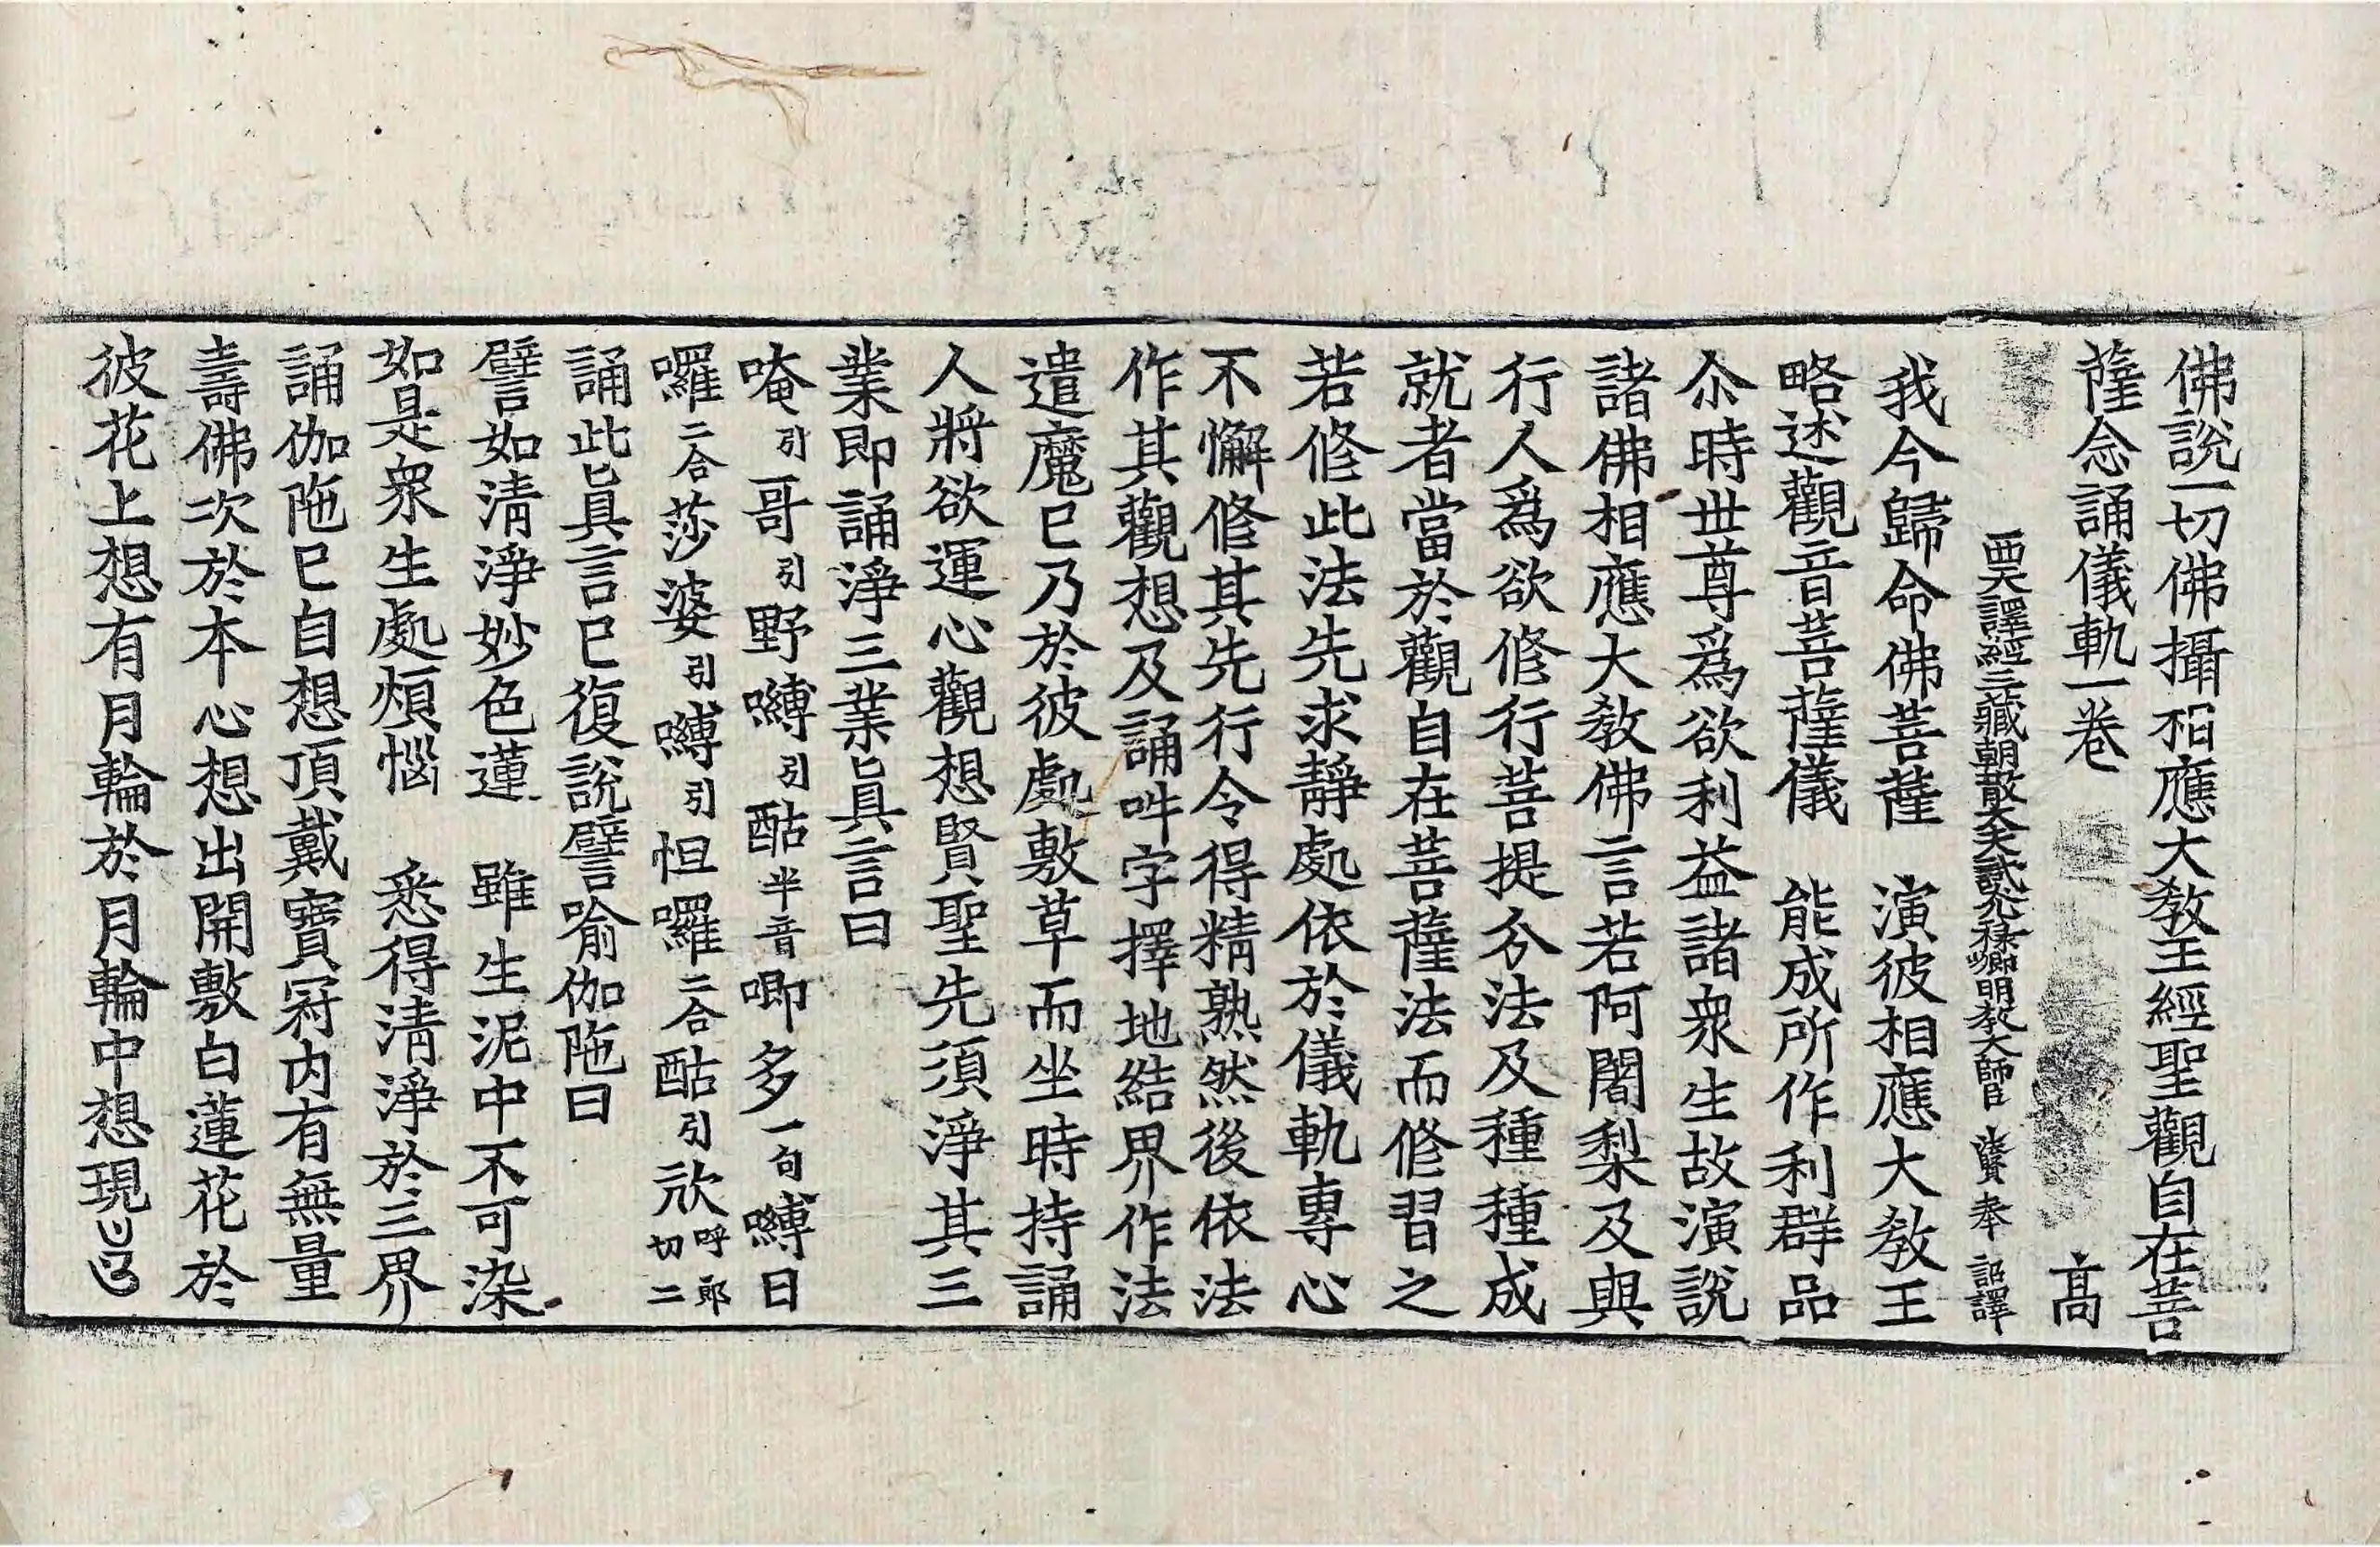 佛說一切佛攝相應大敎王經聖觀自在菩
薩念誦儀軌一卷 高
西天譯經三藏朝散大夫試光祿卿明敎大師臣 法賢奉 詔譯
我今歸命佛菩薩 演彼相應大敎王
略述觀音菩薩儀 能成所作利群品
尒時世尊爲欲利益諸衆生故演說
諸佛相應大敎佛言若阿闍梨及與
行人爲欲修行菩提分法及種種成
就者當於觀自在菩薩法而修習之
若修此法先求靜處依於儀軌專心
不懈修其先行令得精熟然後依法
作其觀想及誦吽字擇地結界作法
遣魔已乃於彼處敷草而坐時持誦
人將欲運心觀想賢聖先須淨其三
業即誦淨三業眞言曰
唵引哥引野嚩引酤半音唧多一句嚩日
囉二合莎婆引嚩引怛囉二合酤引㰠呼郎切二
誦此眞言已復說譬喻伽陁曰
譬如清淨妙色蓮 雖生泥中不可染
如是衆生處煩惱 悉得清淨於三界
誦伽陁已自想頂戴寶冠内有無量
壽佛次於本心想出開敷白蓮花於
彼花上想有月輪於月輪中想現